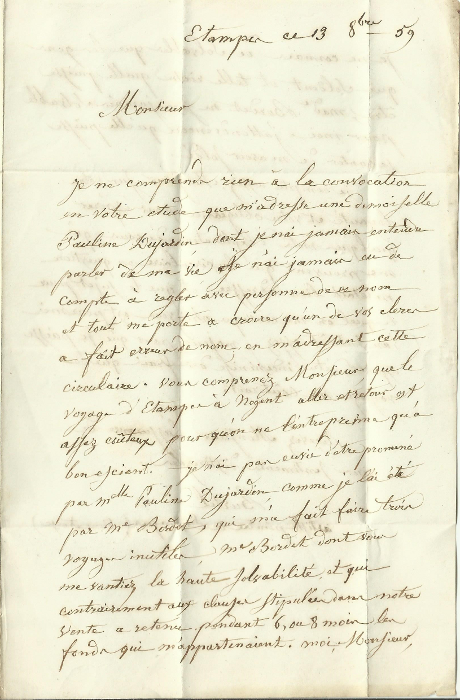 Etampes ce 13 8bre 59
Monsieur
Je ne comprends rien à la convocation
en votre etude que m'adresse une demoiselle
Pauline Dujardin dont je n'ai jamais entendu
parler de ma vie. Je n'ai jamais eu de
compte à regler avec personne de ce nom
et tout me porte a croire qu'un de vos clercs
a fait erreur de nom, en m'adressant cette
circulaire. vous comprenez Monsieur que le
voyage d'Etampes à Nogent aller et retour est
assez coûteux pour qu'on ne l'entreprenne qu'a
bon escient. je n'ai pas envie d'être promené
par Melle Pauline Dujardin, comme je l'ai été
par Mr Bordet, qui m'a fait faire trois
voyages inutiles, Mr Bordet dont vous
me vantiez la haute solvabilité et qui
contrairement aux clauses stipulées dans notre
vente a retenu pendant 6 ou 8 mois les
fonds qui m'appartenaient. moi, Monsieur,